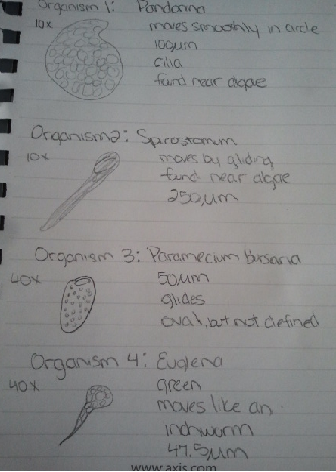 Organism 1: Pandorina
10x moves smoothly in circle
100µm
cilia
found near algae
Organism 2: Spirostomum
10x moves by gliding
found near algae
250µm
Organism 3: Paramecium Bursaria
40x 50µm
glides
oval, but not defined
Organism 4: Euglena
40x green
moves like an
inchworm
47.5µm
www.axis.com